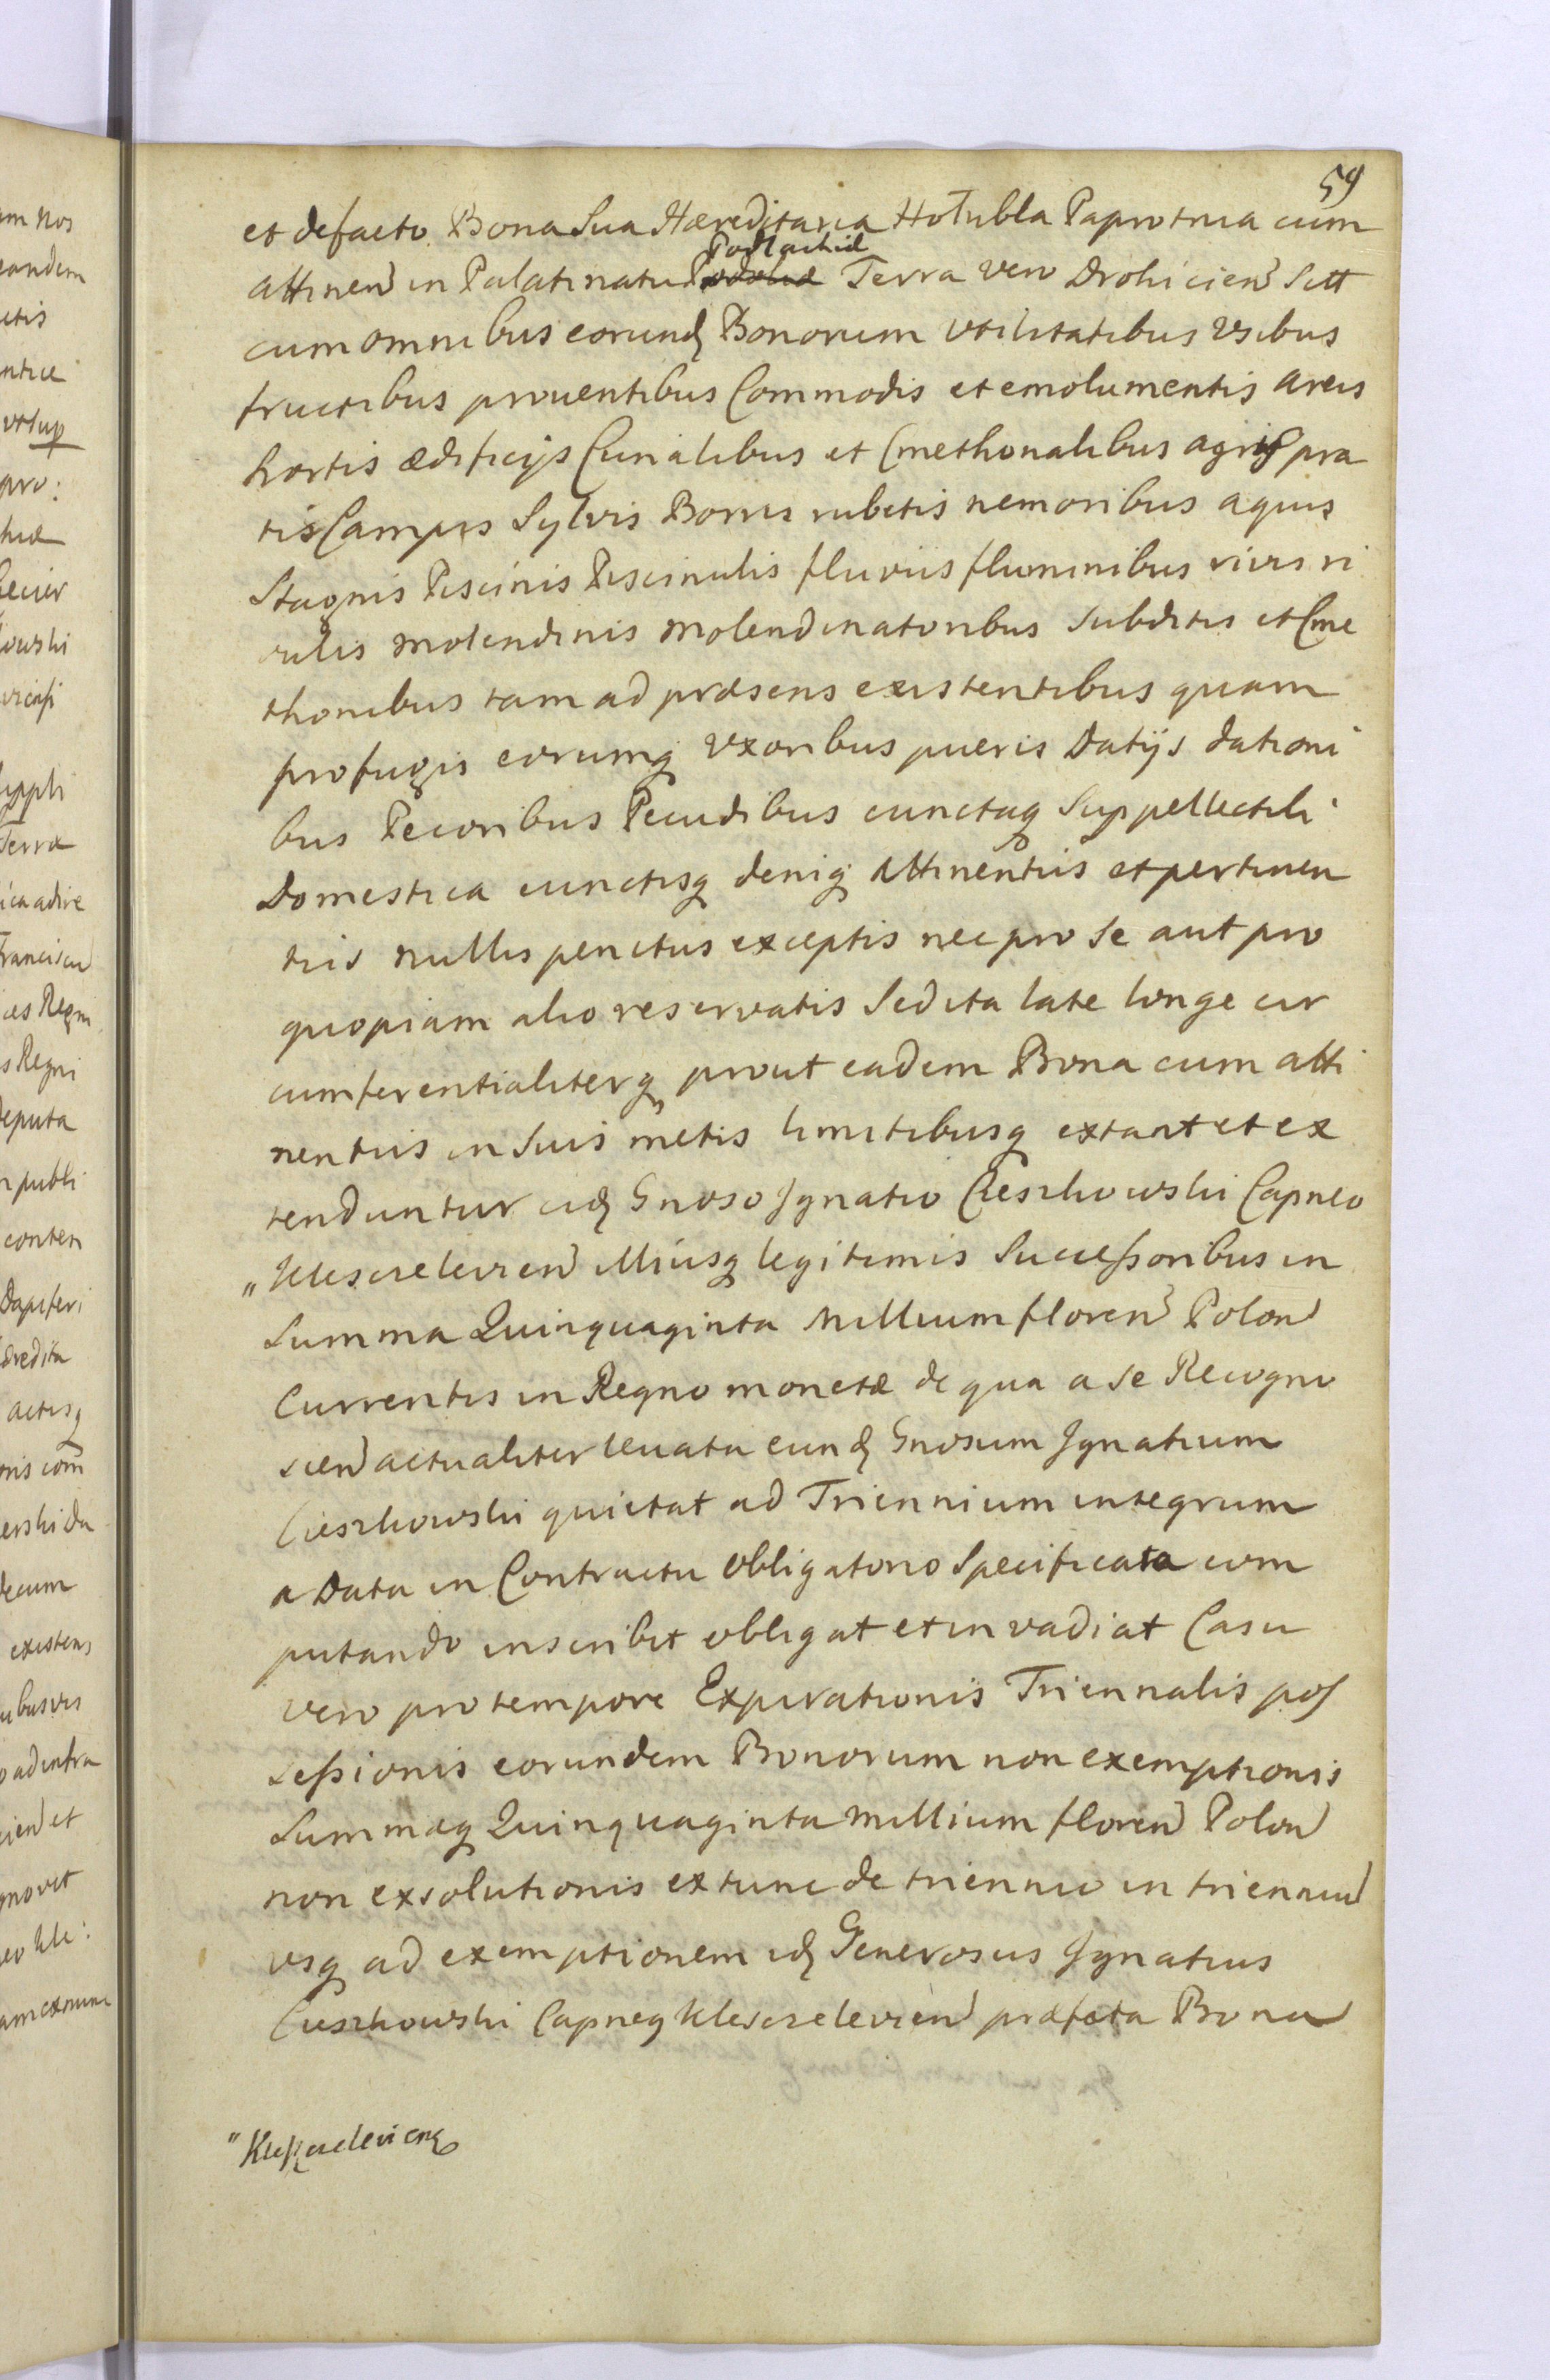 59
et defacto Bona Sua Hæreditaria Hołubla Paprotnia cum
Podlachiæ
attinen in Palatinatu Podoliæ Terra vero Drohicien Sitt
cum omnibus eorund Bonorum Vtilitatibus Vsibus
fructibus prouentibus Commodis et emolumentis areis
hortis ædificijs Curialibus et Cmethonalibus agris pra
tis Campis Sylvis Borris rubetis nemoribus aquis
Stagnis Piscinis Piscinulis fluviis fluminibus rivis ri
vulis Molendinis Molendinatoribus Subditis et Cme
thonibus tam ad præsens existentibus quam
profugis eorumq Vxoribus pueris Datijs dationi
bus Pecoribus Pecudibus cunctaq Suppellectili
Domestica cunctisq deniq Attinentiis et pertinen
tiis nullis penitus exceptis nec pro se aut pro
quopiam alio reservatis Sed ita late longe cir
cumferentialiterq prout eadem Bona cum atti
nentiis in Suis metis limitibusq extant et ex
tenduntur eid Gnoso Ignatio Cieszkowski Capneo
" Klesczelevien illiusq legitimis Successoribus in
Summa Quinquaginta Millium floren Polon
Currentis in Regno monetæ de qua a se Recogno
scen actualiter levata eund Gnosum Ignatium
Cieszkowski quietat ad Triennium integrum
a Data in Contractu Obligatorio Specificata com
putando inscribit obligat et invadiat Casu
vero pro tempore Expirationis Triennalis pos
sessionis eorundem Bonorum non exemptionis
Summæq Quinquaginta Millium floren Polon
non exsolutionis extunc de triennio in trienniu
vsq ad exemptionem id Generosus Ignatius
Cieszkowski Capneq Klesczelevien præfata Bona
" Kleszczelevien